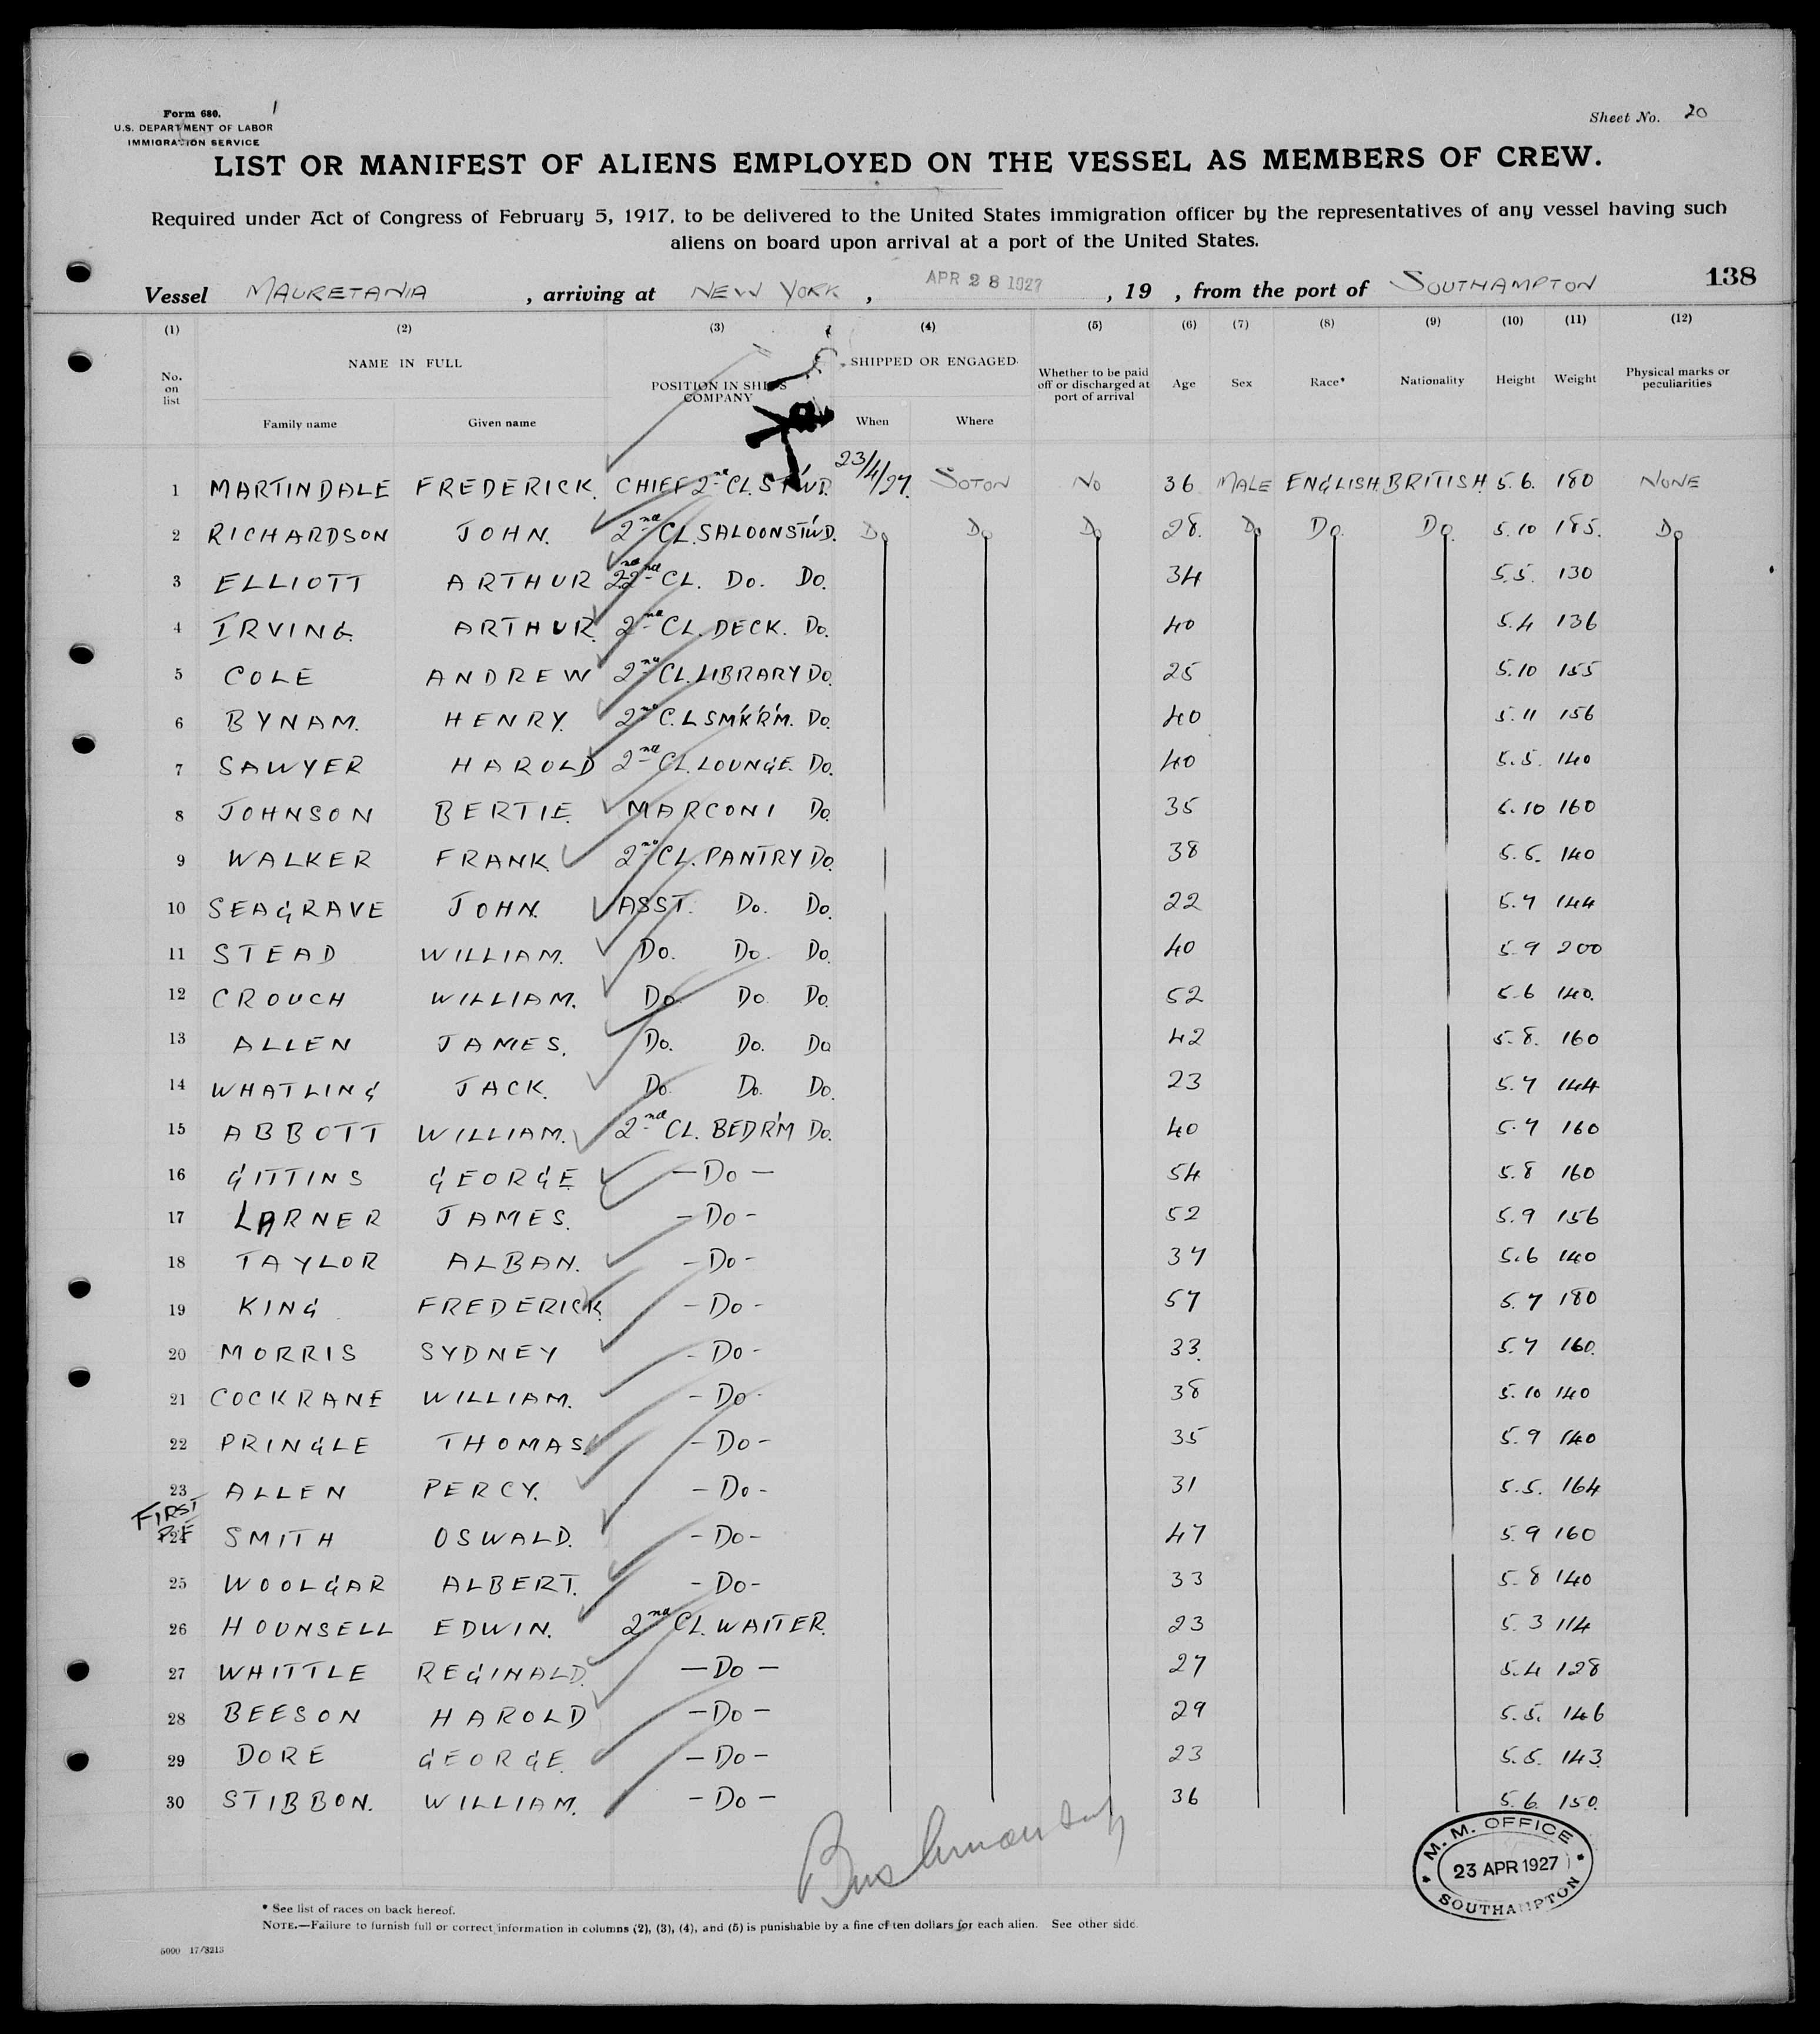 Form 680.
U.S. DEPARTMENT OF LABOR
IMMIGRATION SERVICE
Sheet No. 20
LIST OR MANIFEST OF ALIENS EMPLOYED ON THE VESSEL AS MEMBERS OF CREW.
Required under Act of Congress of February 5, 1917, to be delivered to the United States immigration officer by the representatives of any vessel having such
aliens on board upon arrival at a port of the United States.
Vessel MAURETANIA , arriving at NEW YORK , APR 28 1927 , 19 , from the port of SOUTHAMPTON 138
(1) (2) (3) (4) (5) (6) (7) (8) (9) (10) (11) (12)
No. on list NAME IN FULL Family name Given name POSITION IN SHIP'S COMPANY SHIPPED OR ENGAGED When Where Whether to be paid off or discharged at port of arrival Age Sex Race* Nationality Height Weight Physical marks or peculiarities
1 MARTINDALE FREDERICK. CHIEF 2nd CL. ST'W'D. 23/4/27. SOTON NO 36 MALE ENGLISH BRITISH 5.6. 180 NONE
2 RICHARDSON JOHN. 2nd CL. SALOON ST'W'D. Do Do Do 28. Do Do. Do 5.10 185. Do
3 ELLIOTT ARTHUR 2nd CL. Do. Do. 34 5.5. 130
4 IRVING ARTHUR. 2nd CL. DECK. Do. 40 5.4 136
5 COLE ANDREW 2nd CL. LIBRARY Do. 25 5.10 155
6 BYNAM. HENRY. 2nd C.L SM'K'R'M. Do. 40 5.11 156
7 SAWYER HAROLD 2nd CL. LOUNGE. Do. 40 5.5. 140
8 JOHNSON BERTIE. MARCONI Do. 35 5.10 160
9 WALKER FRANK. 2nd CL. PANTRY Do. 38 5.5. 140
10 SEAGRAVE JOHN. ASST. Do. Do. 22 5.7 144
11 STEAD WILLIAM. Do. Do. Do. 40 5.9 200
12 CROUCH WILLIAM. Do Do. Do. 52 5.6 140.
13 ALLEN JAMES. Do. Do. Do 42 5.8. 160
14 WHATLING JACK. Do. Do. Do. 23 5.7 144
15 ABBOTT WILLIAM. 2nd CL. BEDR'M Do. 40 5.7 160
16 GITTINS GEORGE — Do — 54 5.8 160
17 LARNER JAMES. - Do - 52 5.9 156
18 TAYLOR ALBAN. - Do - 37 5.6 140
19 KING FREDERICK. - Do - 57 5.7 180
20 MORRIS SYDNEY - Do - 33. 5.7 160.
21 COCKRANE WILLIAM. - Do - 38 5.10 140
22 PRINGLE THOMAS. - Do - 35 5.9 140
23 ALLEN PERCY. - Do - 31 5.5. 164
FIRST
24 SMITH OSWALD. - Do - 47 5.9 160
25 WOOLGAR ALBERT. - Do - 33 5.8 140
26 HOUNSELL EDWIN. 2nd CL. WAITER. 23 5.3 114
27 WHITTLE REGINALD. — Do — 27 5.4 128
28 BEESON HAROLD — Do — 29 5.5. 146
29 DORE GEORGE. — Do — 23 5.5. 143.
30 STIBBON. WILLIAM. — Do — 36 5.6. 150.
M.M. OFFICE
23 APR 1927
SOUTHAMPTON
* See list of races on back hereof.
NOTE.—Failure to furnish full or correct information in columns (2), (3), (4), and (5) is punishable by a fine of ten dollars for each alien. See other side.
5000 17/3213